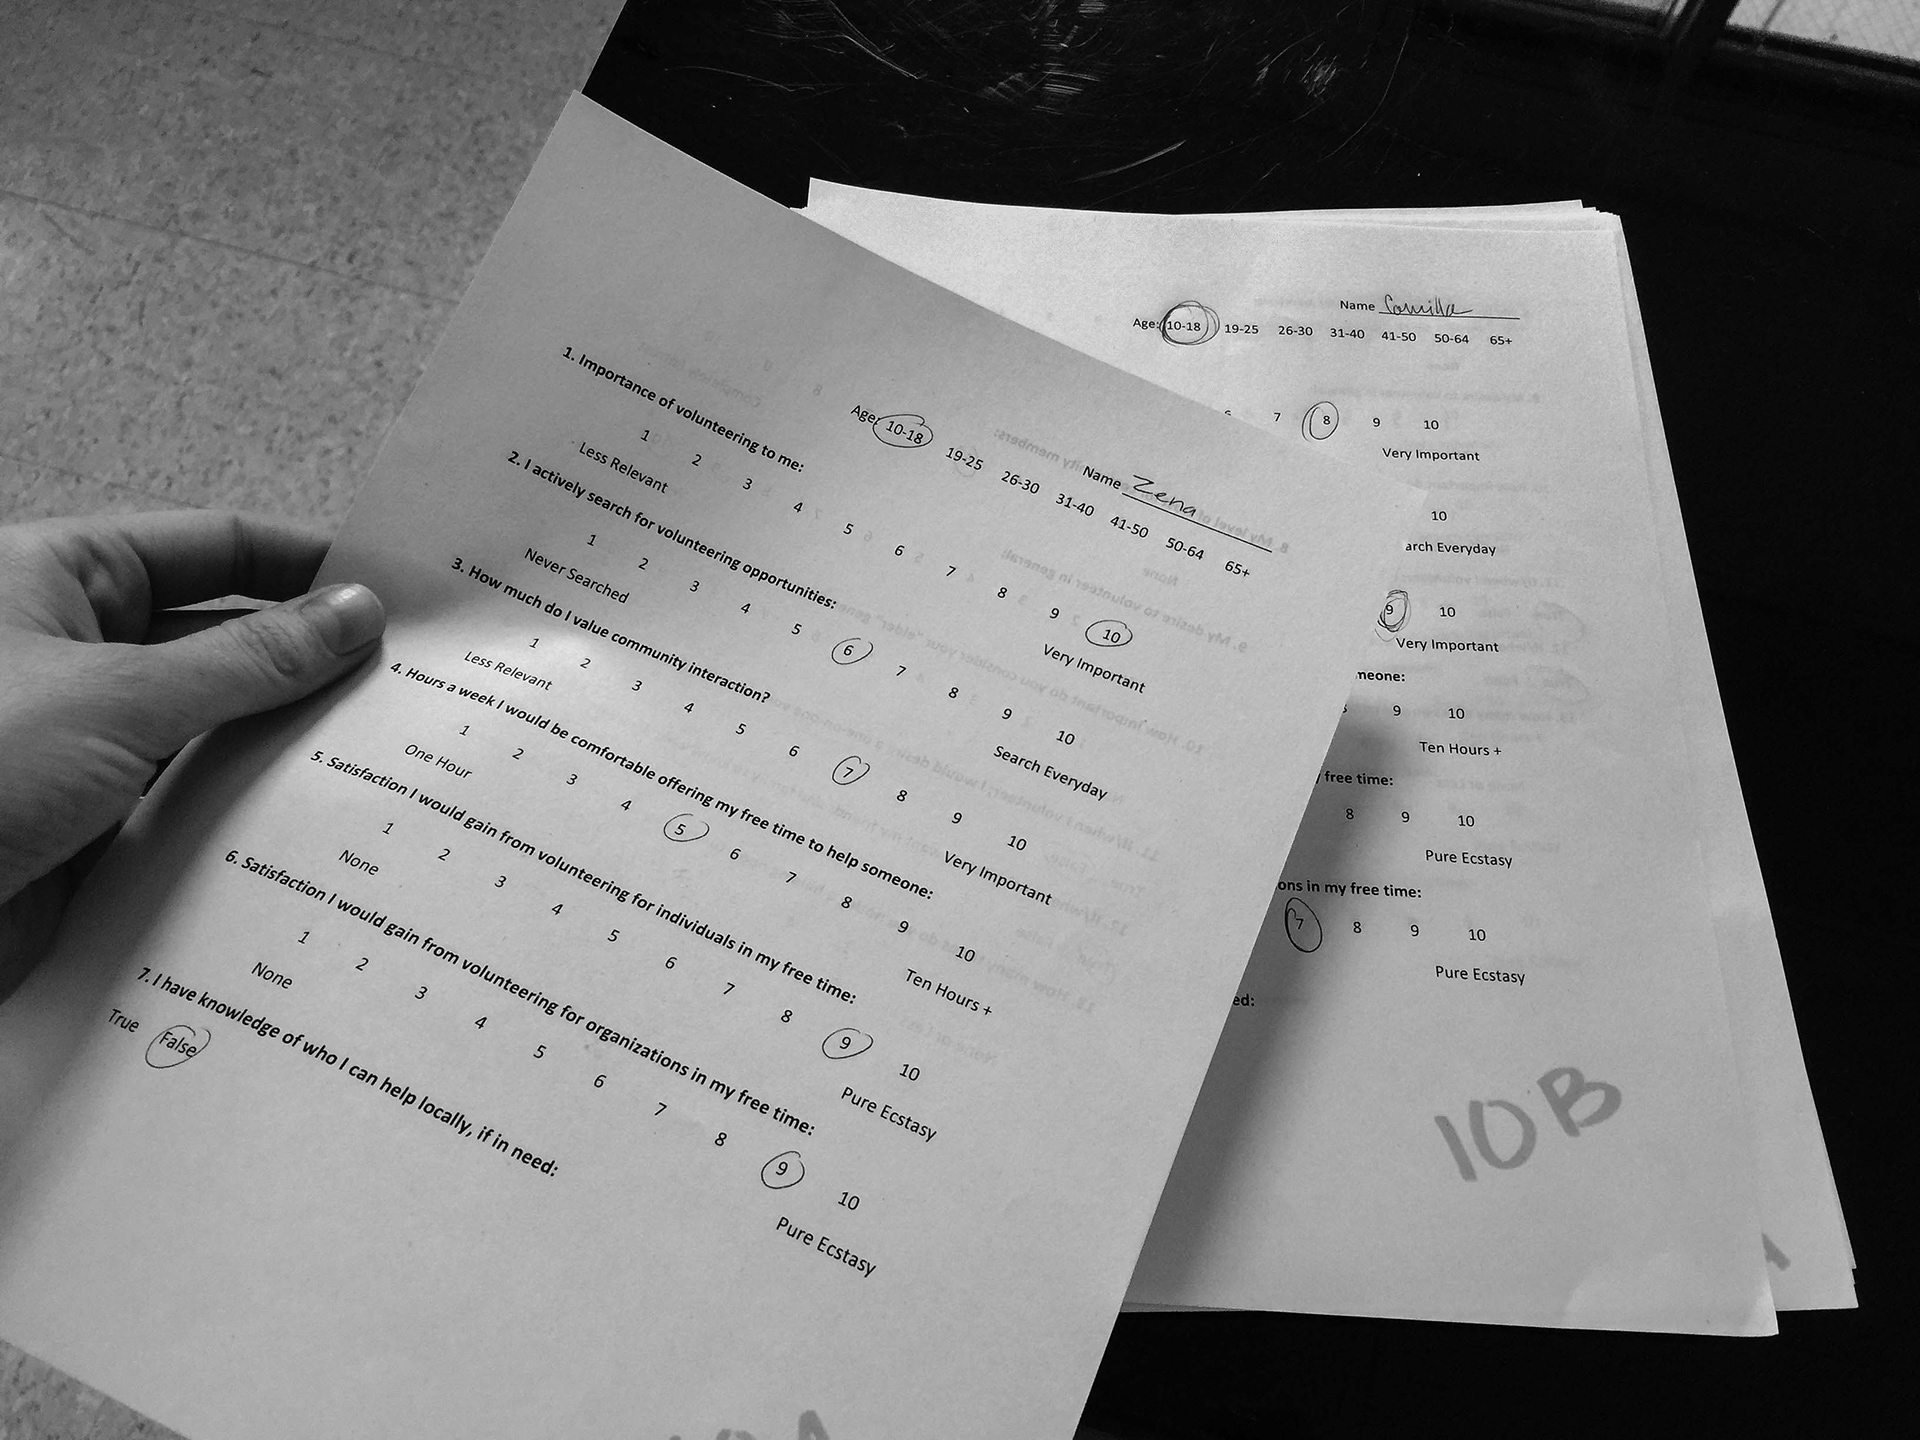 Name Zena
Age: 10-18 19-25 26-30 31-40 41-50 50-64 65+
1. Importance of volunteering to me:
1 2 3 4 5 6 7 8 9 10
Less Relevant Very Important
2. I actively search for volunteering opportunities:
1 2 3 4 5 6 7 8 9 10
Never Searched Search Everyday
3. How much do I value community interaction?
1 2 3 4 5 6 7 8 9 10
Less Relevant Very Important
4. Hours a week I would be comfortable offering my free time to help someone:
1 2 3 4 5 6 7 8 9 10
One Hour Ten Hours +
5. Satisfaction I would gain from volunteering for individuals in my free time:
1 2 3 4 5 6 7 8 9 10
None Pure Ecstasy
6. Satisfaction I would gain from volunteering for organizations in my free time:
1 2 3 4 5 6 7 8 9 10
None Pure Ecstasy
7. I have knowledge of who I can help locally, if in need:
True False
Name Camilla
Age: 10-18 19-25 26-30 31-40 41-50 50-64 65+
7 8 9 10
Very Important
10
arch Everyday
9 10
Very Important
meone:
9 10
Ten Hours +
free time:
8 9 10
Pure Ecstasy
ons in my free time:
7 8 9 10
Pure Ecstasy
ed:
10B